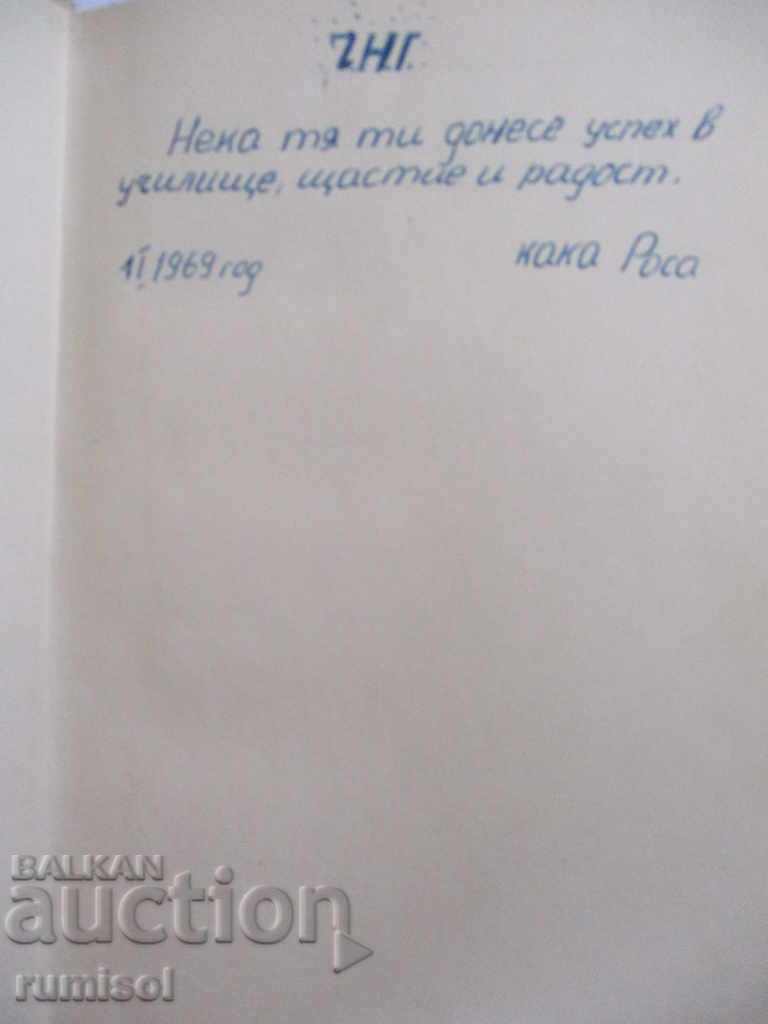 Ч.Н.Г.
Нека тя ти донесе успех в
училище, щастие и радост.
1/I 1969 год
кака Роса
BALKAN
auction
rumisol